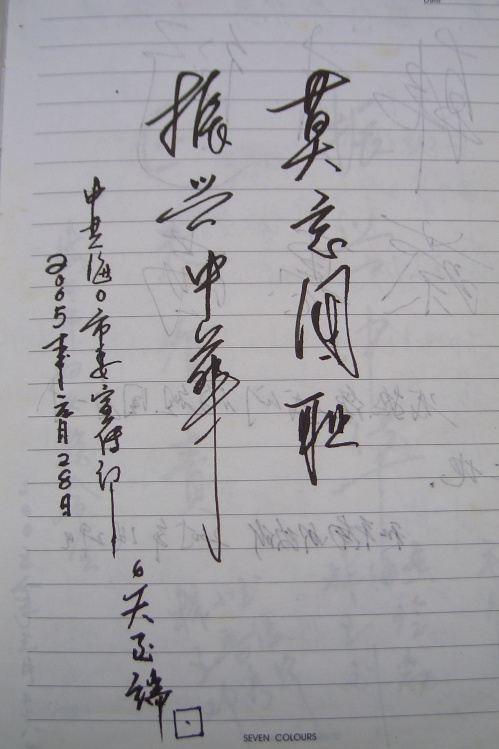 莫忘国耻
振兴中华
中共海口市委宣传部
2005年元月28日
SEVEN COLOURS